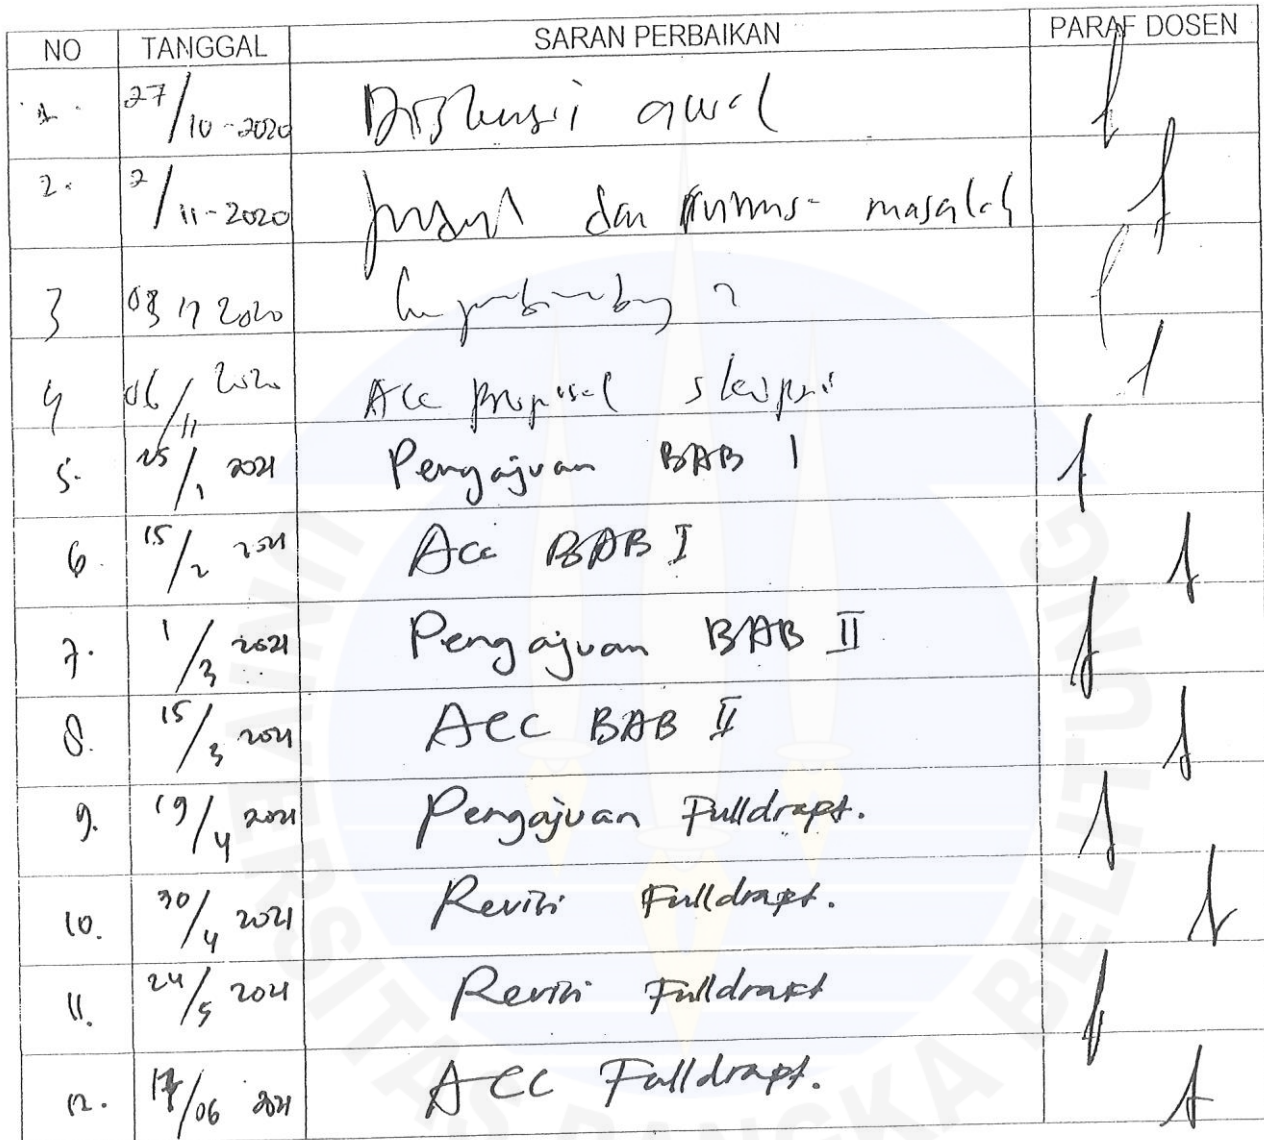 NO TANGGAL SARAN PERBAIKAN PARAF DOSEN
1. 27/10-2020 Diskusi awal
2. 2/11-2020 Judul dan rumus- masalah
3 03 11 2020 ke pembimbing 2
4 06/11 2020 Acc proposal skripsi
5. 25/1 2021 Pengajuan BAB I
6. 15/2 2021 Acc BAB I
7. 1/3 2021 Pengajuan BAB II
8. 15/3 2021 ACC BAB II
9. 19/4 2021 Pengajuan Fulldrapt.
10. 30/4 2021 Revisi Fulldrapt.
11. 24/5 2021 Revisi Fulldrapt
12. /06 2021 ACC Fulldrapt.
UNIVERSITAS BANGKA BELITUNG